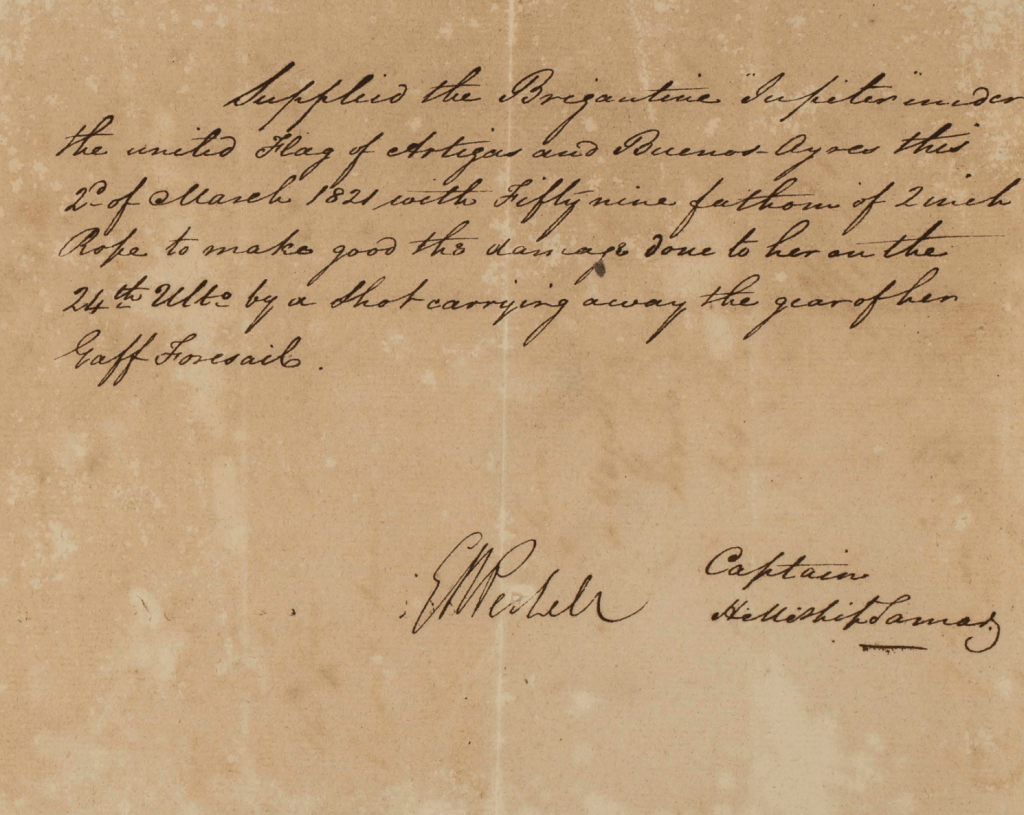 Supplied the Brigantine "Jupiter" under
the united Flag of Artigas and Buenos-Ayres this
2d of March 1821 with Fifty nine fathom of 2 inch
Rope to make good the damage done to her on the
24th Ulto by a Shot carrying away the gear of her
Gaff Foresail.
Captain
H M Ship Tamar